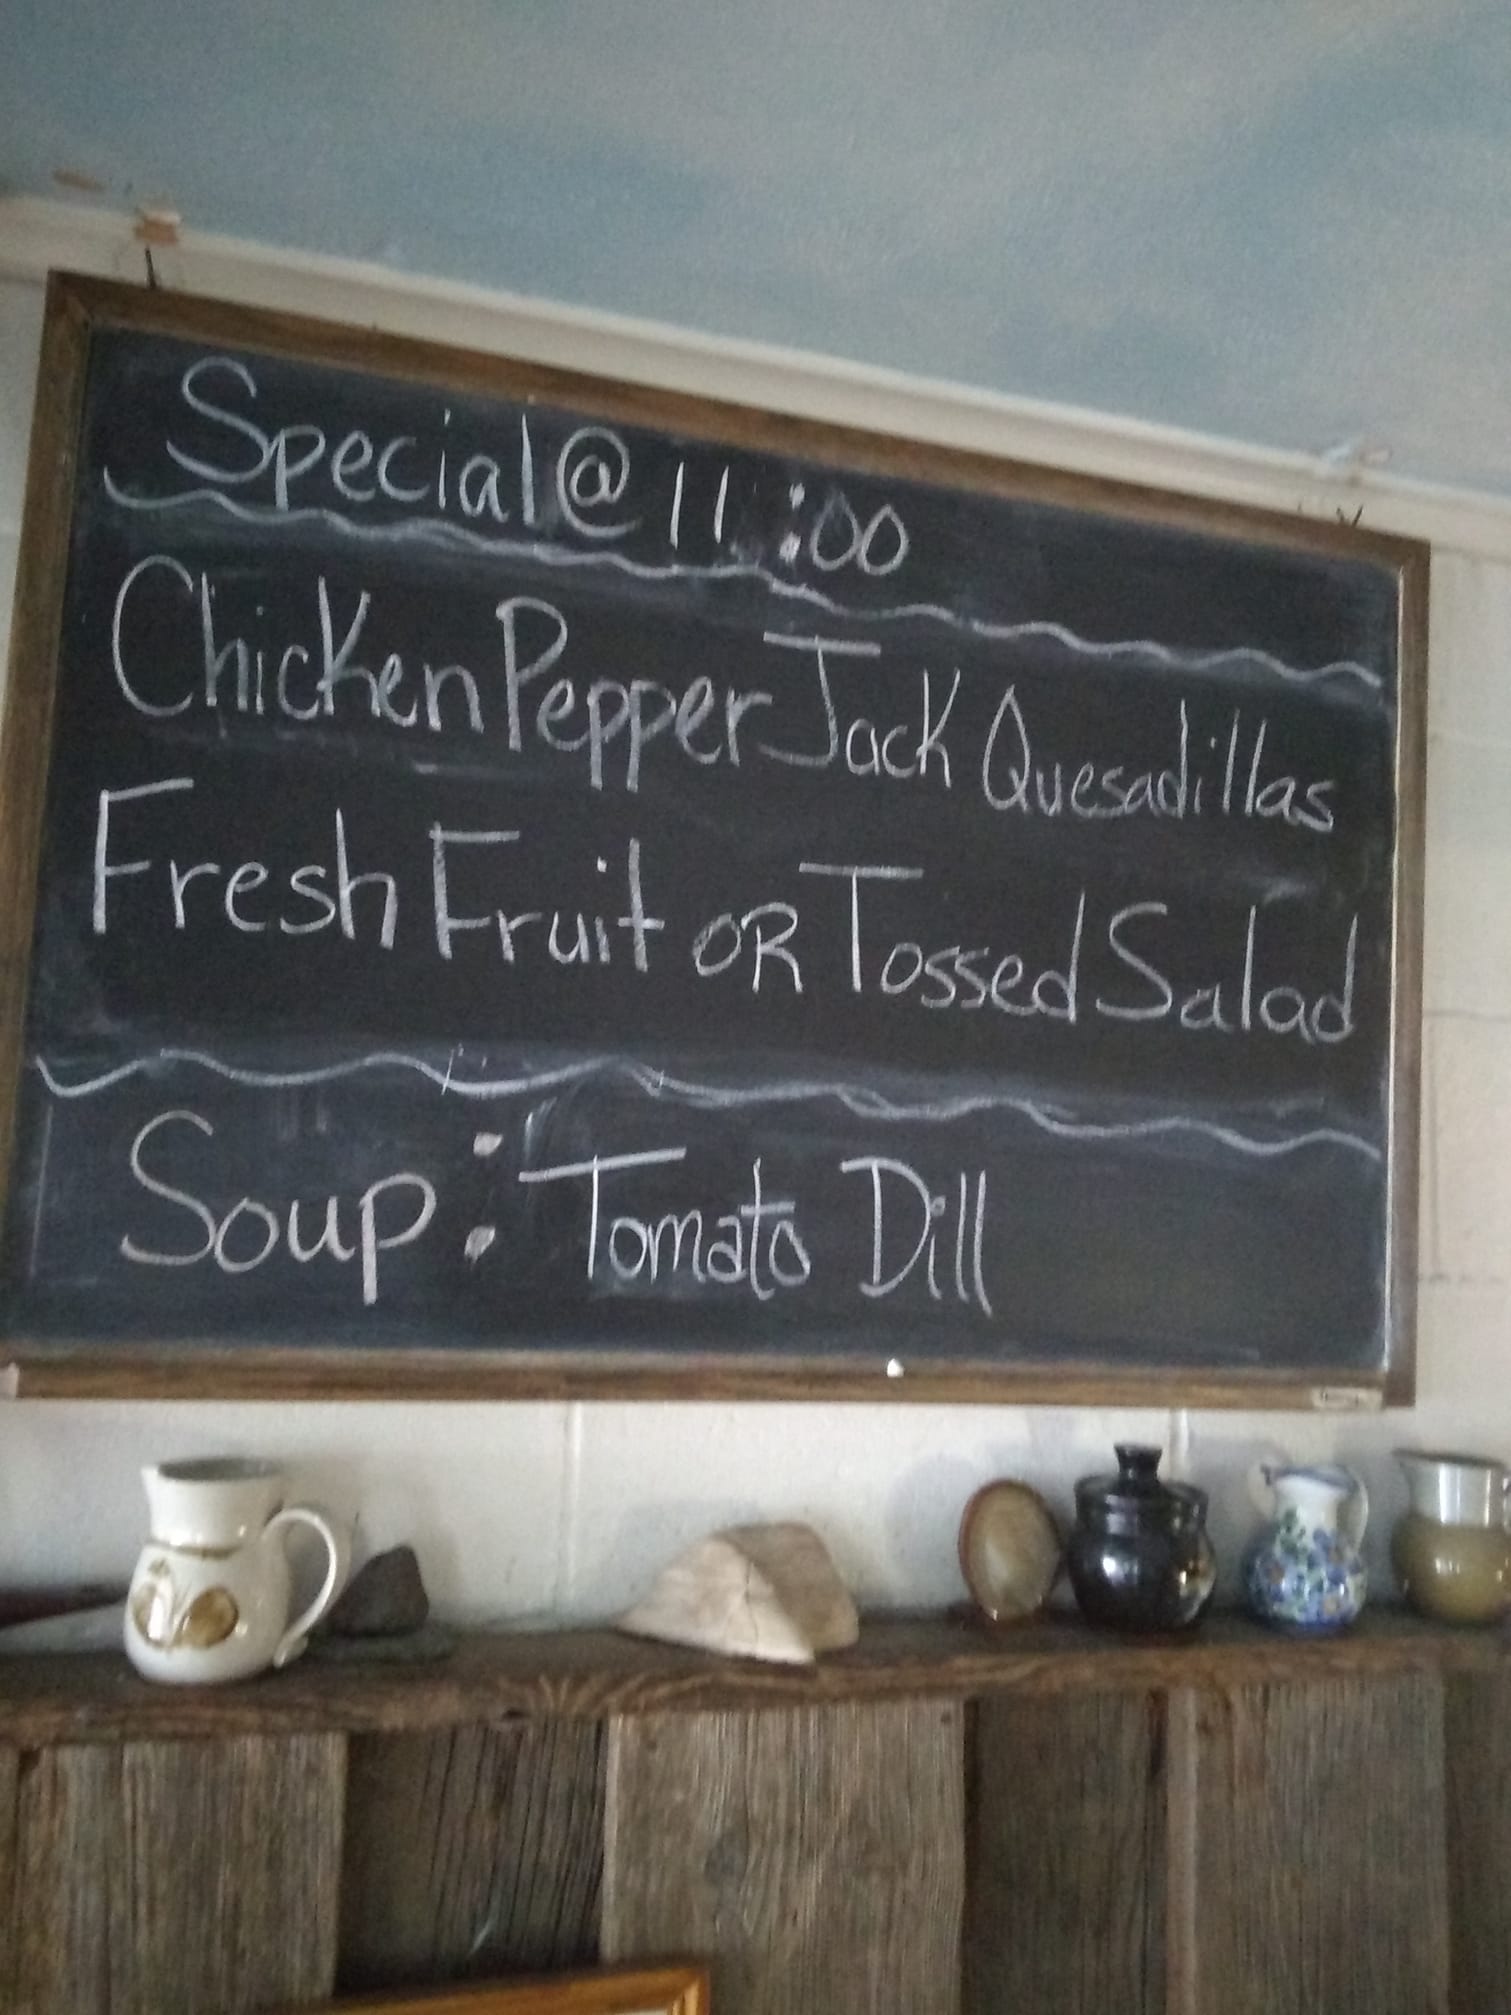 Special @ 11:00
Chicken Pepper Jack Quesadillas
Fresh Fruit OR Tossed Salad
Soup: Tomato Dill